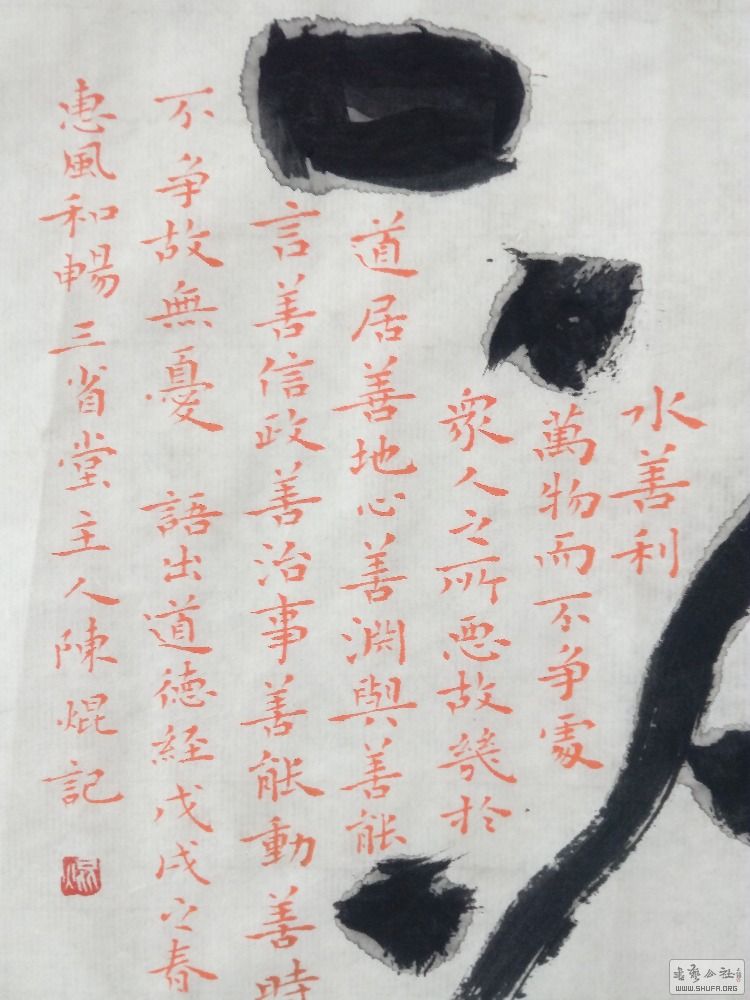 水善利
萬物而不争處
衆人之所惡故幾於
道居善地心善淵與善能
言善信政善治事善能動善時
不争故無憂 語出道德經戊戌之春
惠風和暢三省堂主人陳焜記
书艺公社
WWW.SHUFA.ORG